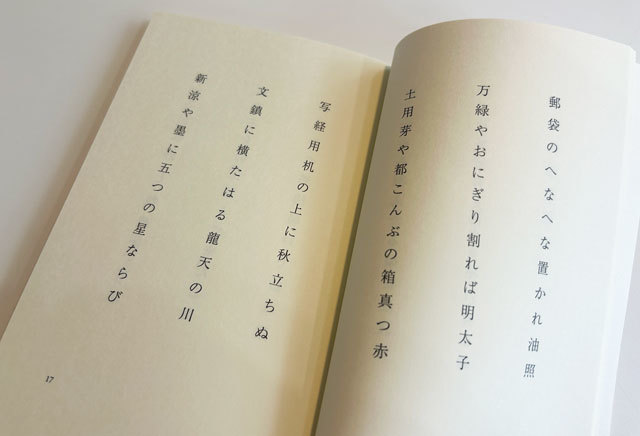 郵袋のへなへな置かれ油照
万緑やおにぎり割れば明太子
土用芽や都こんぶの箱真つ赤
写経用机の上に秋立ちぬ
文鎮に横たはる龍天の川
新涼や墨に五つの星ならび
17